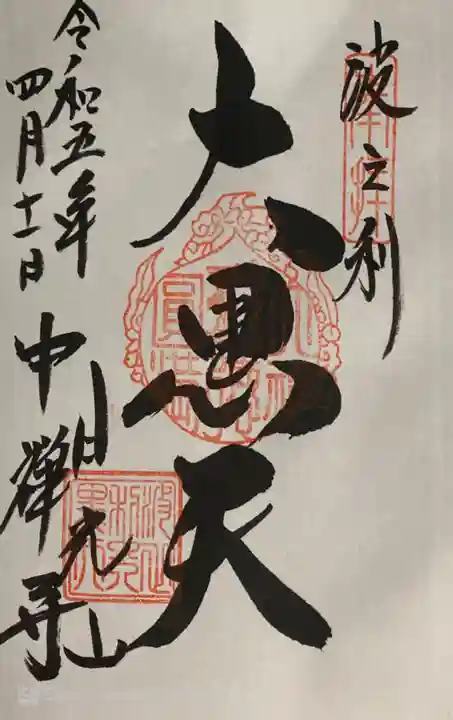 波之利
大黒天
日光山
中禅寺
令和五年
四月十一日